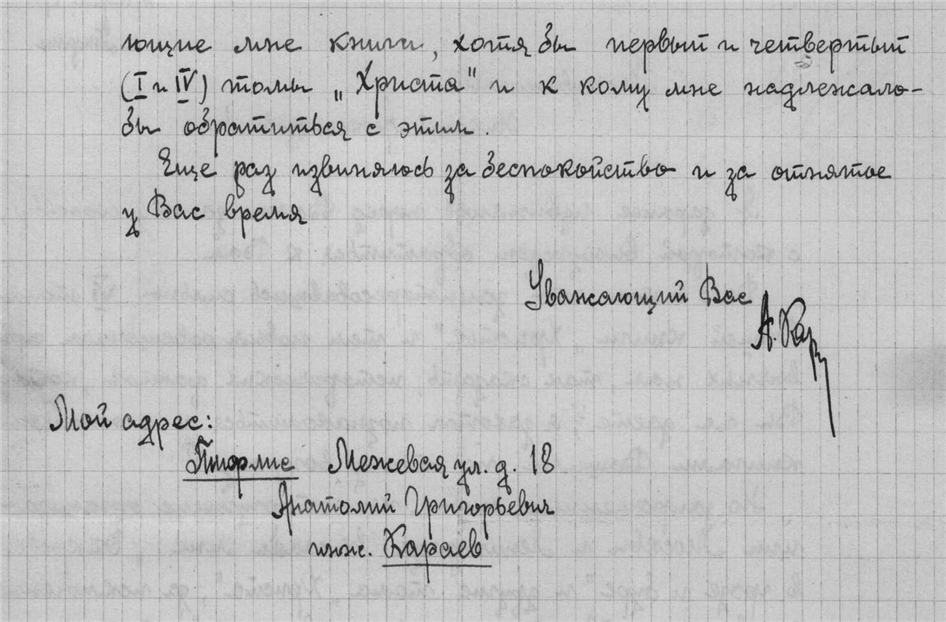 ющие мне книги, хотя бы первый и четвертый
(I и IV) томы „Христа" и к кому мне надлежало-
бы обратиться с этим.
Еще раз извиняюсь за беспокойство и за отнятое
у Вас время
Уважающий Вас
А. Кар
Мой адрес:
Тифлис Межевая ул. д. 18
Анатолий Григорьевич
инж. Караев